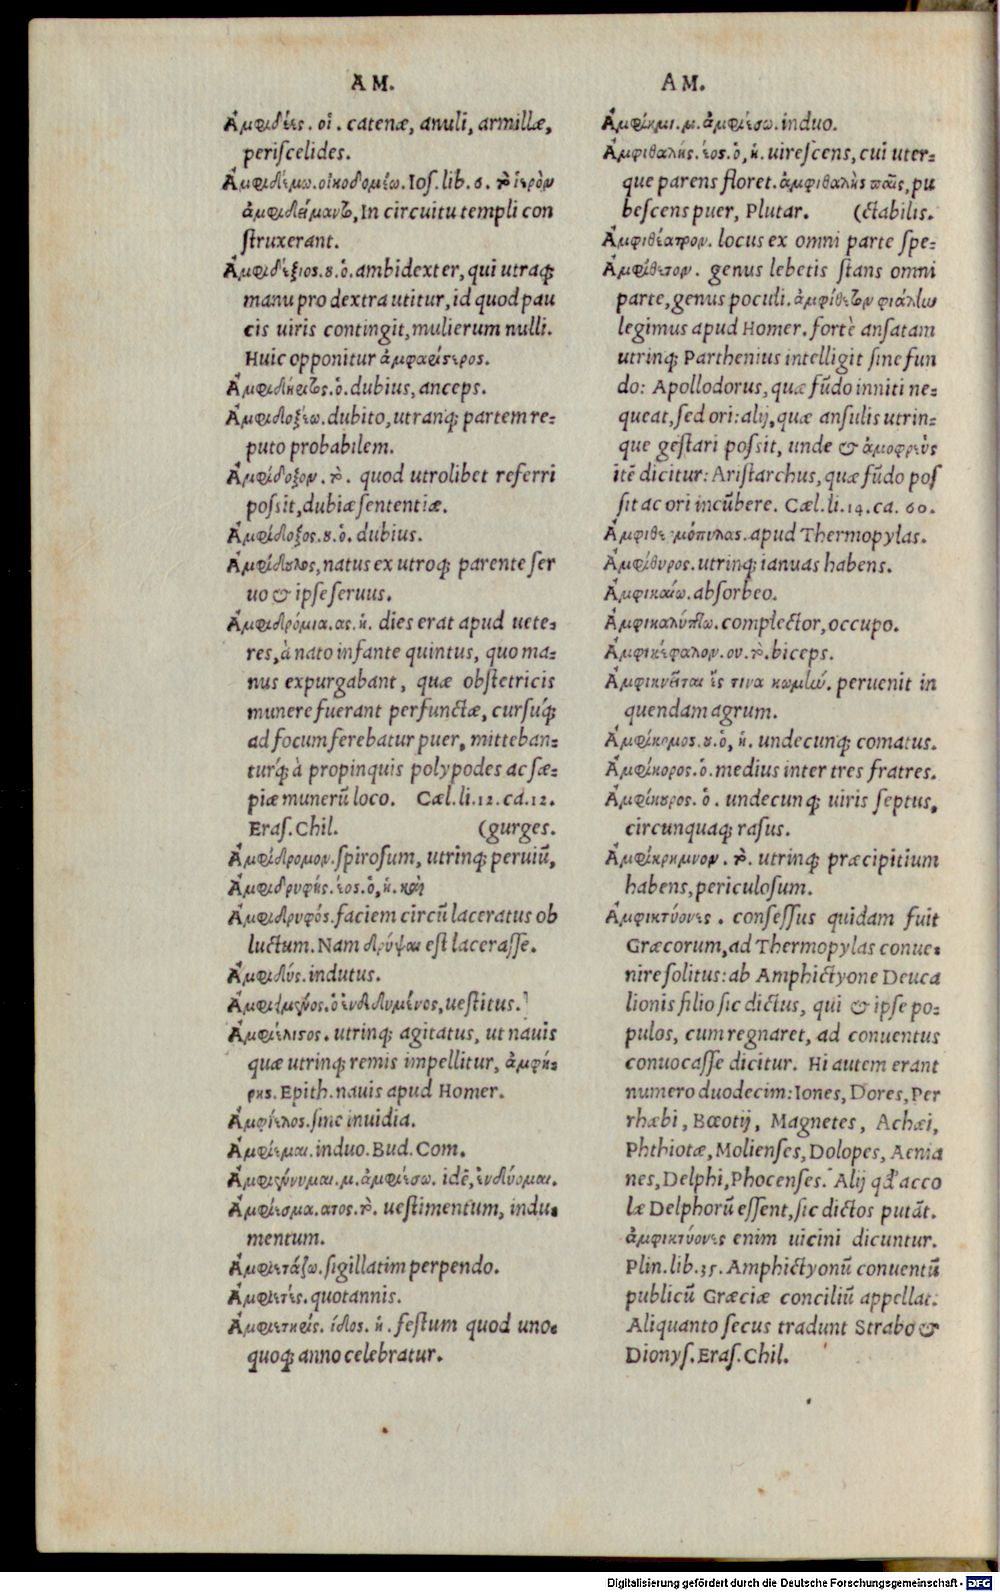 AM.
Ἀμφιδέες. οἱ. catenæ, anuli, armillæ,
periſcelides.
Ἀμφιδέμω. οἰκοδομέω. Ioſ. lib. 6. τὸ ἱερὸν
ἀμφιδείμαντο, In circuitu templi con
ſtruxerant.
Ἀμφιδέξιος. ου. ὁ. ambidexter, qui utraq;
manu pro dextra utitur, id quod pau
cis uiris contingit, mulierum nulli.
Huic opponitur ἀμφαρίστερος.
Ἀμφιδήριτος. ὁ. dubius, anceps.
Ἀμφιδοξέω. dubito, utranq; partem re-
puto probabilem.
Ἀμφίδοξον. τὸ. quod utrolibet referri
poſsit, dubiæ ſententiæ.
Ἀμφίδοξος. ου. ὁ. dubius.
Ἀμφίδουλος, natus ex utroq; parente ſer
uo & ipſe ſeruus.
Ἀμφιδρόμια. ας. ἡ. dies erat apud uete-
res, à nato infante quintus, quo ma-
nus expurgabant, quæ obſtetricis
munere fuerant perfunctæ, curſuq́;
ad focum ferebatur puer, mitteban-
turq́; à propinquis polypodes ac ſæ-
piæ munerū loco. Cæl. li. 12. ca. 12.
Eraſ. Chil. (gurges.
Ἀμφίδρομον. ſpiroſum, utrinq; peruiū,
Ἀμφιδρυφής. έος. ὁ, ἡ. καὶ
Ἀμφιδρυφός. faciem circū laceratus ob
luctum. Nam δρύψαι est laceraſſe.
Ἀμφιδύς. indutus.
ὁ ἐνδιδυμένος, ueſtitus.
Ἀμφιέλισσος. utrinq; agitatus, ut nauis
quæ utrinq; remis impellitur, ἀμφήρ-
ρης. Epith. nauis apud Homer.
ſine inuidia.
Ἀμφίεμαι. induo. Bud. Com.
Ἀμφιέννυμαι. μ. ἀμφιέσω. idē, ἐνδύομαι.
Ἀμφίεσμα. ατος. τὸ. ueſtimentum, indu-
mentum.
Ἀμφιετάζω. ſigillatim perpendo.
Ἀμφιετές. quotannis.
Ἀμφιετηρίς. ίδος. ἡ. feſtum quod uno-
quoq; anno celebratur.
AM.
Ἀμφίημι. μ. ἀμφιέσω. induo.
Ἀμφιθαλής. έος. ὁ, ἡ. uireſcens, cui uter-
que parens floret. ἀμφιθαλὴς παῖς, pu
beſcens puer, Plutar. (ctabilis.
Ἀμφιθέατρον. locus ex omni parte ſpe-
Ἀμφίθετον. genus lebetis ſtans omni
parte, genus poculi. ἀμφίθετον φιάλην
legimus apud Homer. fortè anſatam
utrinq; Parthenius intelligit ſine fun
do: Apollodorus, quæ fūdo inniti ne-
queat, ſed ori: alij, quæ anſulis utrin-
que geſtari poſsit, unde & ἀμοφρεὺς
itē dicitur: Ariſtarchus, quæ fūdo poſ
ſit ac ori incūbere. Cæl. li. 14. ca. 60.
apud Thermopylas.
Ἀμφίθυρος. utrinq; ianuas habens.
Ἀμφικαίω. abſorbeo.
Ἀμφικαλύπτω. complector, occupo.
Ἀμφικέφαλον. ου. τὸ. biceps.
Ἀμφικνεῖται ἔς τινα κωμὴν. peruenit in
quendam agrum.
Ἀμφίκομος. ου. ὁ, ἡ. undecunq; comatus.
Ἀμφίκορος. ὁ. medius inter tres fratres.
Ἀμφίκουρος. ὁ. undecunq; uiris ſeptus,
circunquaq; raſus.
Ἀμφίκρημνον. τὸ. utrinq; præcipitium
habens, periculoſum.
Ἀμφικτύονες. conſeſſus quidam fuit
Græcorum, ad Thermopylas conue-
nire ſolitus: ab Amphictyone Deuca
lionis filio ſic dictus, qui & ipſe po-
pulos, cum regnaret, ad conuentus
conuocaſſe dicitur. Hi autem erant
numero duodecim: Iones, Dores, Per
rhæbi, Bœotij, Magnetes, Achæi,
Phthiotæ, Molienſes, Dolopes, Aenia
nes, Delphi, Phocenſes. Alij qđ acco
læ Delphorū eſſent, ſic dictos putāt.
ἀμφικτύονες enim uicini dicuntur.
Plin. lib. 35. Amphictyonū conuentū
publicū Græciæ conciliū appellat.
Aliquanto ſecus tradunt Strabo &
Dionyſ. Eraſ. Chil.
Digitalisierung gefördert durch die Deutsche Forschungsgemeinschaft - DFG